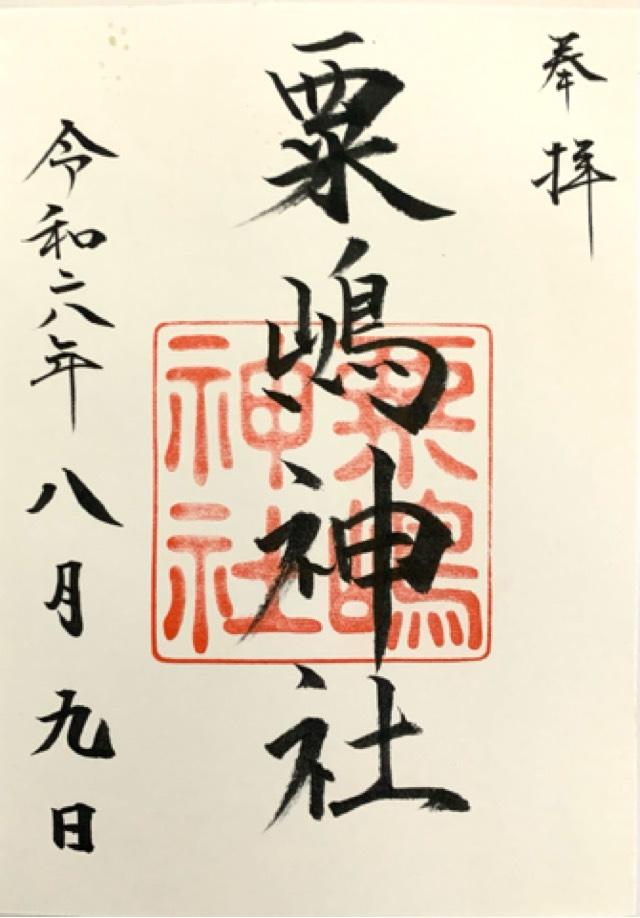 奉拝
粟嶋神社
粟嶋
神社
令和六年八月九日